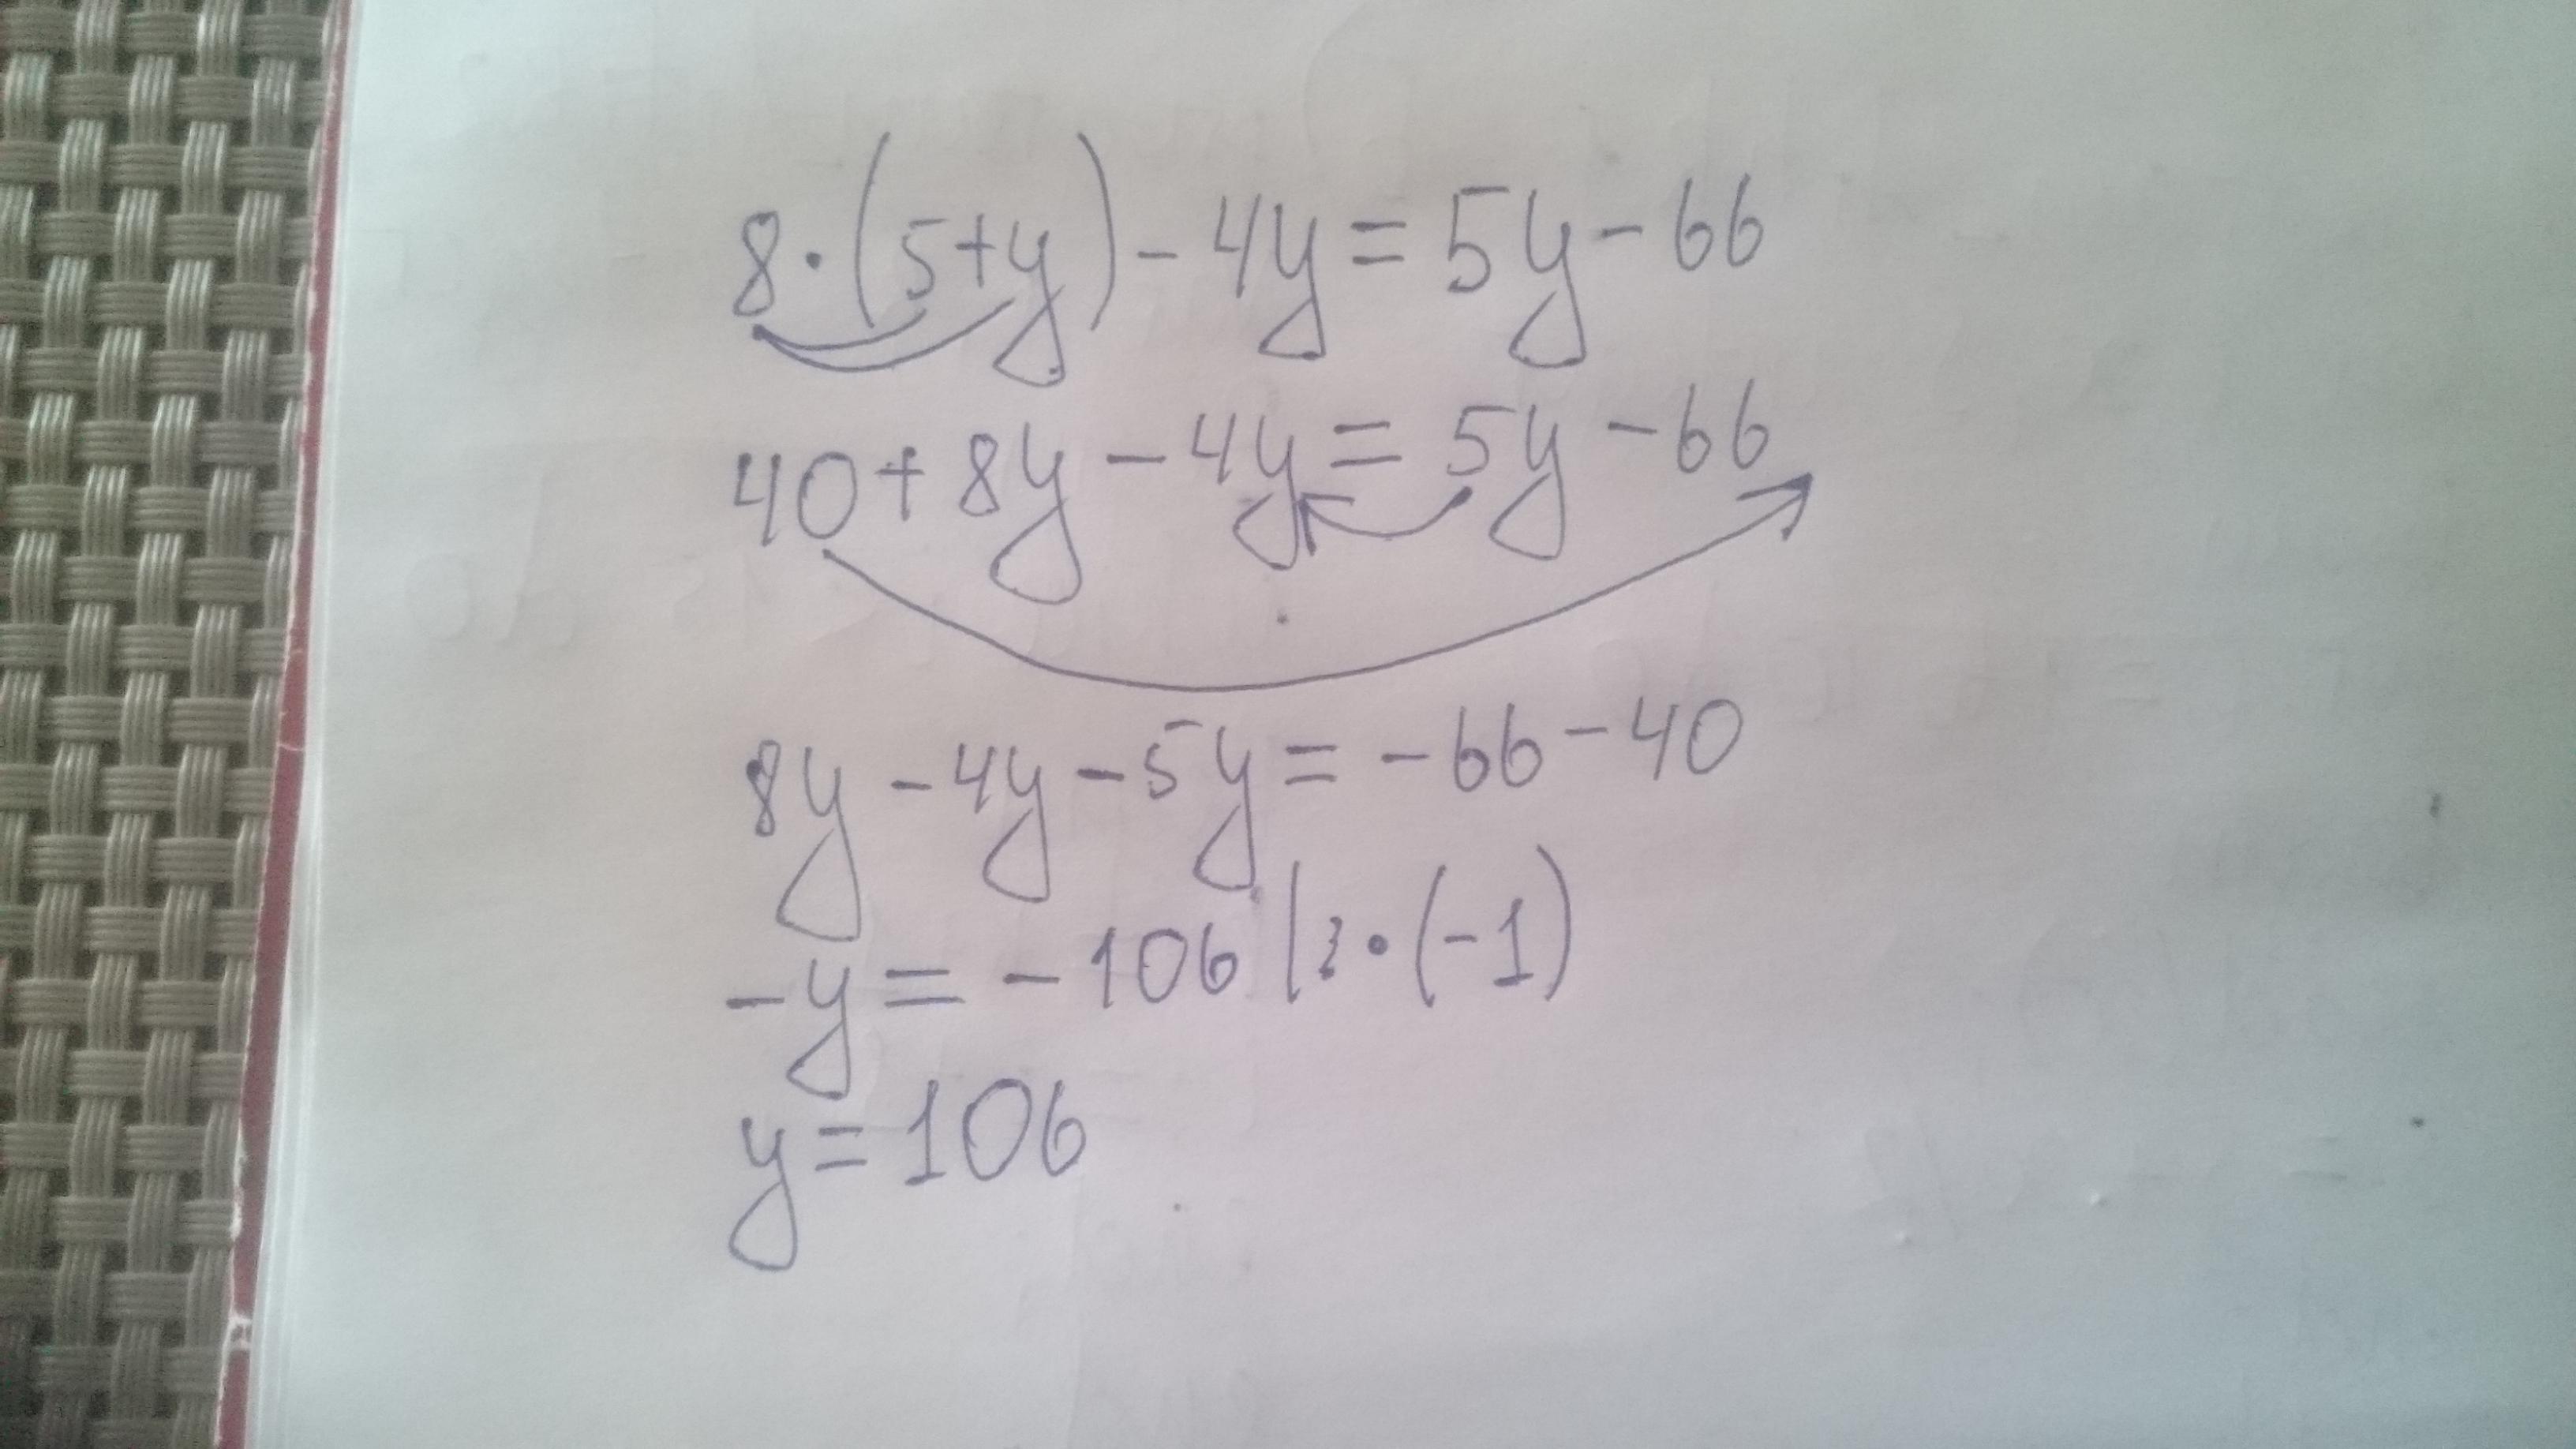 8·(5+y)-4y=5y-66
40+8y-4y=5y-66
8y-4y-5y=-66-40
-y=-106|·(-1)
y=106